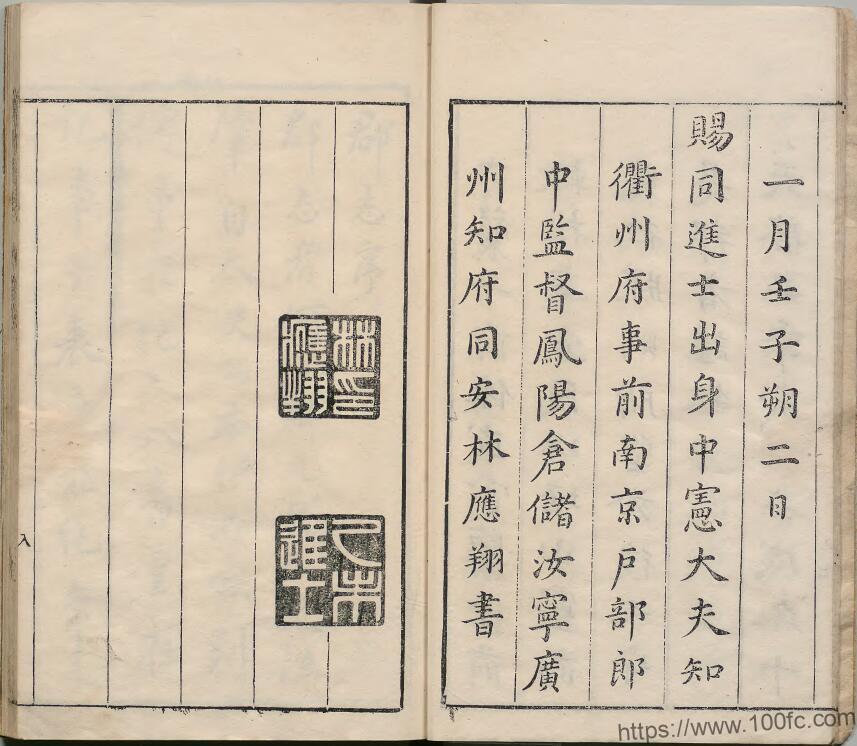 一月壬子朔二日
賜同進士出身中憲大夫知
衢州府事前南京戶部郎
中監督鳳陽倉儲汝寧廣
州知府同安林應翔書
林印
應翔
乙未
進士
八
https://www.100fc.com